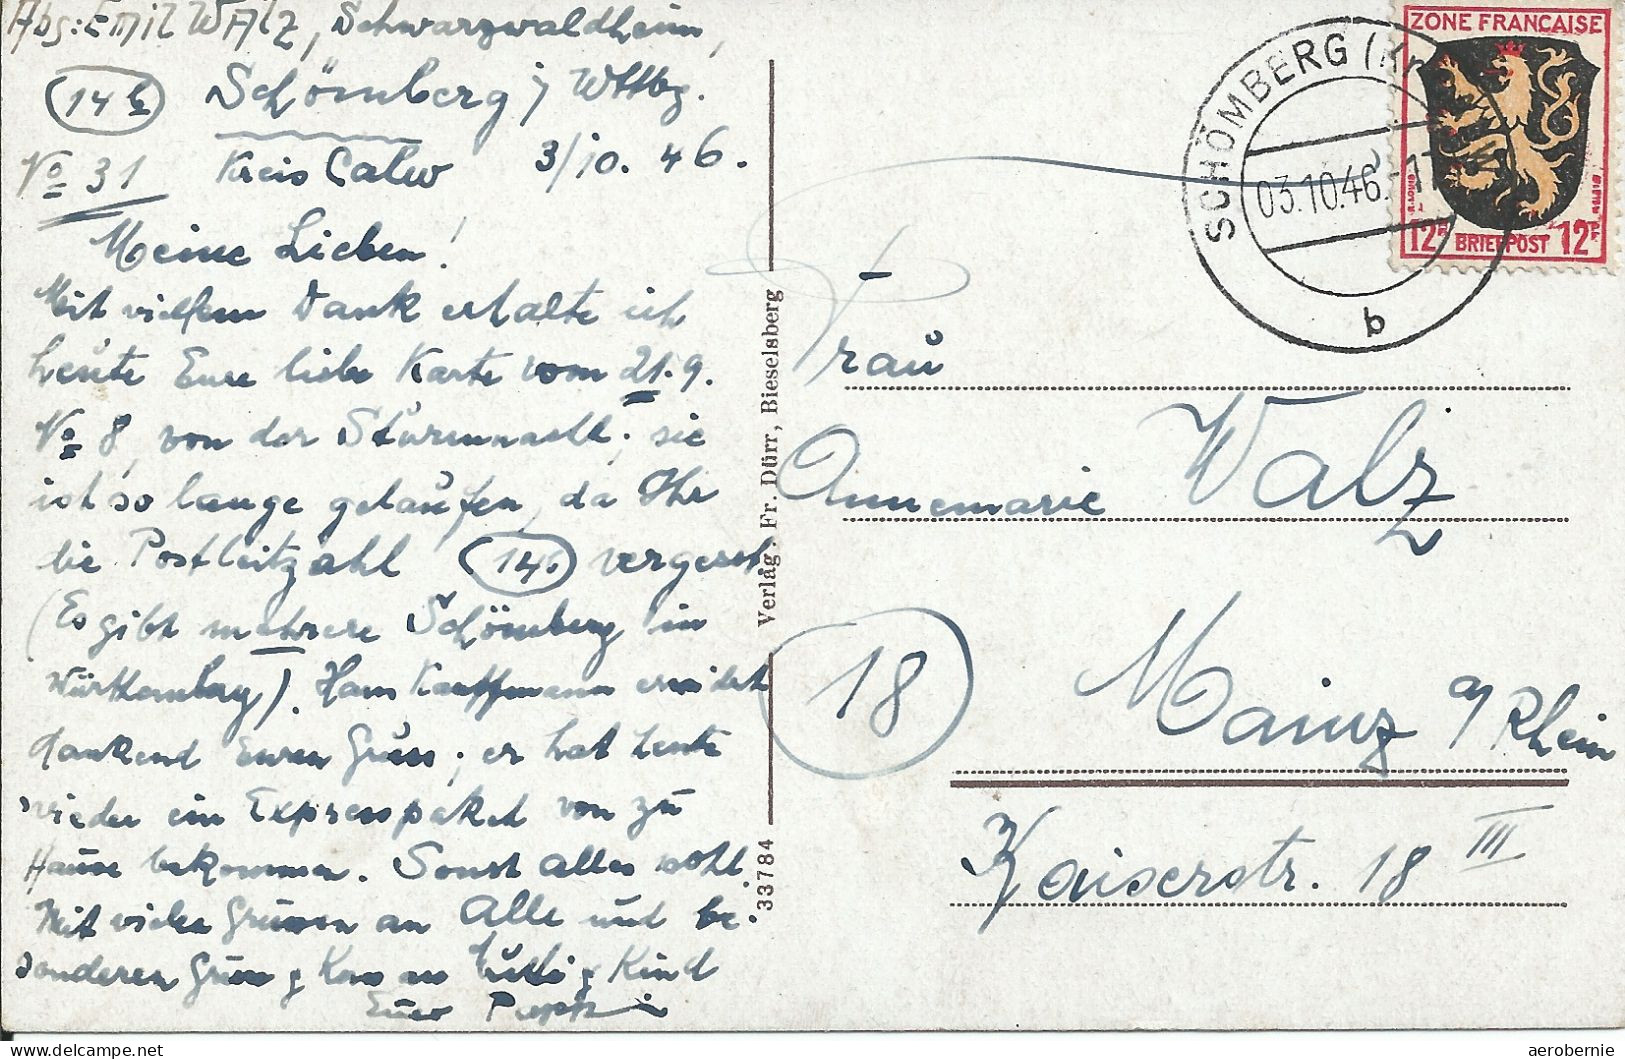 Abs: Emil Walz, Schwarzwaldheim,
14b Schömberg / Wttbg.
No 31 Kreis Calw 3/10. 46.
Meine Lieben!
Mit vielem Dank erhalte ich
heute Eure liebe Karte vom 21.9.
No 8, von der; sie
ist so lange gelaufen, da Ihr
die Postleitzahl 14b vergesst
(Es gibt mehrere Schömberg in
Württemberg). Hans Kauffmann erwidert
dankend Euren Gruss; er hat heute
wieder ein Expresspaket von zu
Hause bekommen. Sonst alles wohl.
Mit vielen Grüssen an Alle und be-
sonderen Gruss & Kuss an & Kind
Euer
Verlag. Fr. Dürr, Bieselsberg
33784
SCHÖMBERG (Kr.
03.10.46.-17
b
ZONE FRANÇAISE
12Pf BRIEFPOST 12Pf
Frau
Annemarie Walz
18 Mainz a/Rhein
Kaiserstr. 18 III
aerobernie
delcampe.net